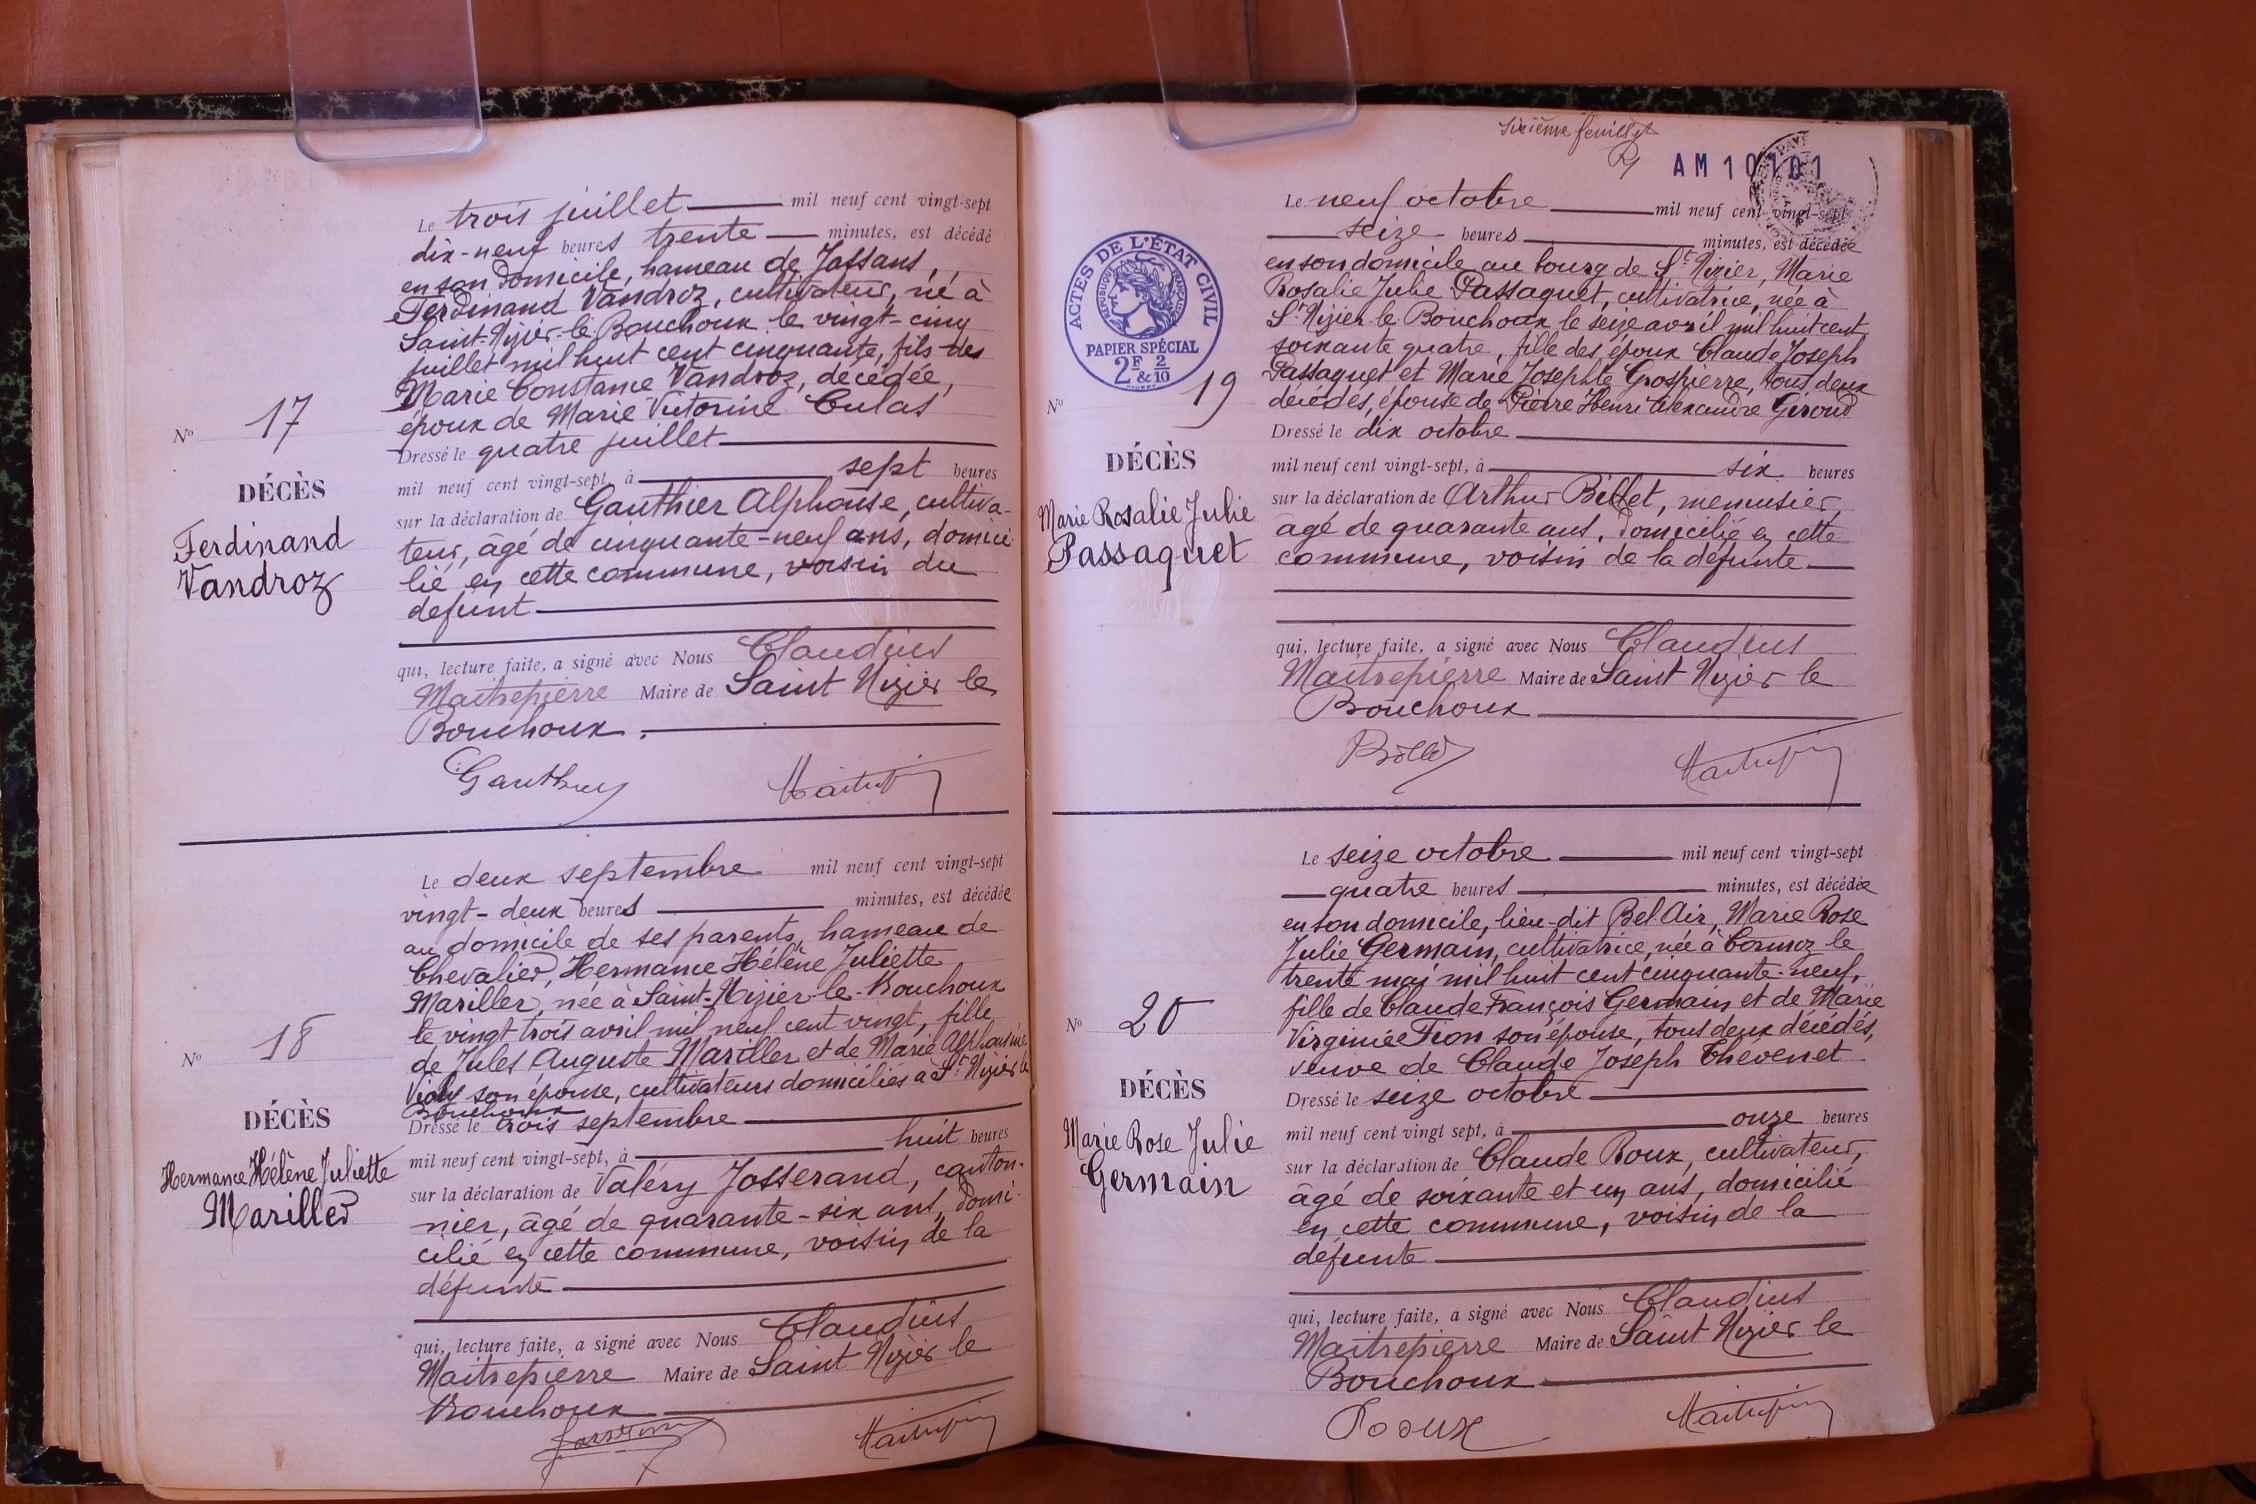 Le trois juillet mil neuf cent vingt-sept
dix-neuf heures trente minutes, est décédé
en son domicile, hameau de Jassans,
Ferdinand Vandroz, cultivateur, né à
Saint-Nizier-le-Bouchoux le vingt-cinq
juillet mil huit cent cinquante, fils des
Marie Constance Vandroz, décédée,
époux de Marie Victorine Culas
Dressé le quatre juillet
mil neuf cent vingt-sept, à sept heures
sur la déclaration de Gauthier Alphonse, cultiva-
teur, âgé de cinquante-neuf ans, domici
lié en cette commune, voisin du
défunt
qui, lecture faite, a signé avec Nous Claudius
Maitrepierre Maire de Saint Nizier le
Bouchoux.
Gauthier Maitrepierre
N° 17
DÉCÈS
Ferdinand
Vandroz
Le deux septembre mil neuf cent vingt-sept
vingt-deux heures minutes, est décédée
au domicile de ses parents, hameau de
Chevalier, Hermance Hélène Juliette
Mariller, née à Saint-Nizier-le-Bouchoux
le vingt trois avril mil neuf cent vingt, fille
de Jules Auguste Mariller et de Marie Alphonsine
Violy son épouse, cultivateurs domiciliés à St Nizier le
Bouchoux
Dressé le trois septembre
mil neuf cent vingt-sept, à huit heures
sur la déclaration de Valéry Josserand, canton-
nier, âgé de quarante-six ans, domi-
cilié en cette commune, voisin de la
défunte
qui, lecture faite, a signé avec Nous Claudius
Maitrepierre Maire de Saint Nizier le
Bouchoux
Josserand Maitrepierre
N° 18
DÉCÈS
Hermance Hélène Juliette
Mariller
sixième feuillet
AM 10101
Le neuf octobre mil neuf cent vingt-sept
seize heures minutes, est décédée
en son domicile au bourg de St Nizier, Marie
Rosalie Julie Passaquet, cultivatrice, née à
St Nizier le Bouchoux le seize avril mil huit cent
soixante quatre, fille des époux Claude Joseph
Passaquet et Marie Josephte Grospierre, tous deux
décédés, épouse de Pierre Henri Alexandre Giroud
Dressé le dix octobre
mil neuf cent vingt-sept, à six heures
sur la déclaration de Arthur Billet, menuisier,
âgé de quarante ans, domicilié en cette
commune, voisin de la défunte
qui, lecture faite, a signé avec Nous Claudius
Maitrepierre Maire de Saint Nizier le
Bouchoux
Billet Maitrepierre
ACTES DE L'ÉTAT CIVIL
RÉPUBLIQUE FRANÇAISE
PAPIER SPÉCIAL
2F & 2/10
N° 19
DÉCÈS
Marie Rosalie Julie
Passaquet
Le seize octobre mil neuf cent vingt-sept
quatre heures minutes, est décédée
en son domicile, lieu-dit Bel-Air, Marie Rose
Julie Germain, cultivatrice, née à Cormoz le
trente mai mil huit cent cinquante-neuf,
fille de Claude François Germain et de Marie
Virginie Fion son épouse, tous deux décédés,
veuve de Claude Joseph Thévenet
Dressé le seize octobre
mil neuf cent vingt sept, à onze heures
sur la déclaration de Claude Roux, cultivateur,
âgé de soixante et un ans, domicilié
en cette commune, voisin de la
défunte
qui, lecture faite, a signé avec Nous Claudius
Maitrepierre Maire de Saint Nizier le
Bouchoux
Roux Maitrepierre
N° 20
DÉCÈS
Marie Rose Julie
Germain